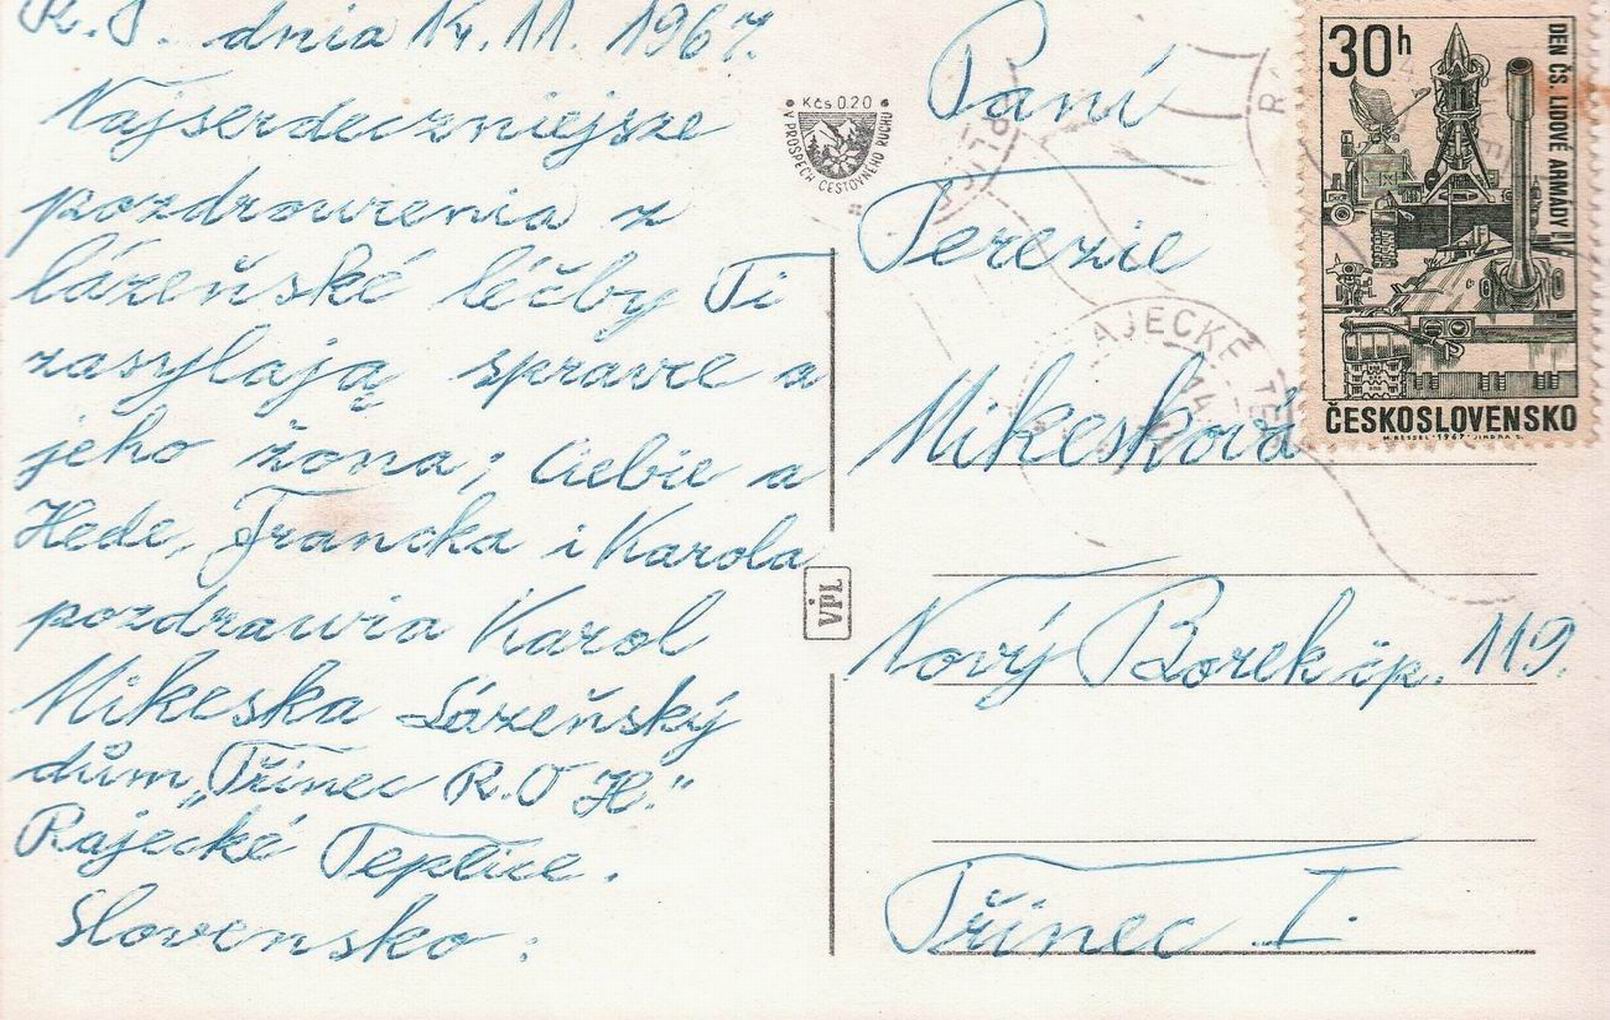 R.T. dnia 14.11. 1967.
Najserdeczniejsze
pozdrowienia z
lázeňské léčby Ti
zasylają spravce a
jeho żona; Ciebie a
Hede, Francka i Karola
pozdrawia Karol
Mikeska Lázeňský
dům „Třinec R.O H."
Rajecké Teplice.
Slovensko.
Kčs 0.20
V PROSPĚCH CESTOVNÉHO RUCHU
VPL
Paní
Terezie
Mikesková
Nový Borek čp. 119.
Třinec I.
30h
DEN ČS. LIDOVÉ ARMÁDY
ČESKOSLOVENSKO
AJECKÉ TE
14